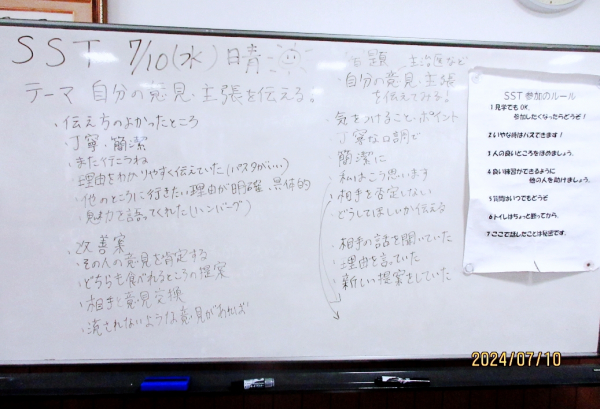 SST 7/10(水) 晴
テーマ 自分の意見・主張を伝える。
・伝え方のよかったところ
・丁寧・簡潔
・また行こうね
・理由をわかりやすく伝えていた(パスタがいい)
・他のところに行きたい理由が明確、具体的
・魅力を語ってくれた(ハンバーグ)
・改善案
・その人の意見を肯定する
・どちらも食べれるところの提案
・相手と意見交換
・流されないような意見があれば
宿題 主治医など
自分の意見・主張
を伝えてみる!
気をつけること・ポイント
丁寧な口調で
簡潔に
・私はこう思います
・相手を否定しない
・どうしてほしいか伝える
・相手の話を聞いていた
・理由を言っていた
・新しい提案をしていた
SST 参加のルール
1 見学でも OK、
参加したくなったらどうぞ!
2 いやな時はパスできます!
3 人の良いところをほめましょう。
4 良い練習ができるように
他の人を助けましょう。
5 質問はいつでもどうぞ
6 トイレはちょっと断ってから。
7 ここで話したことは秘密です。
2024/07/10